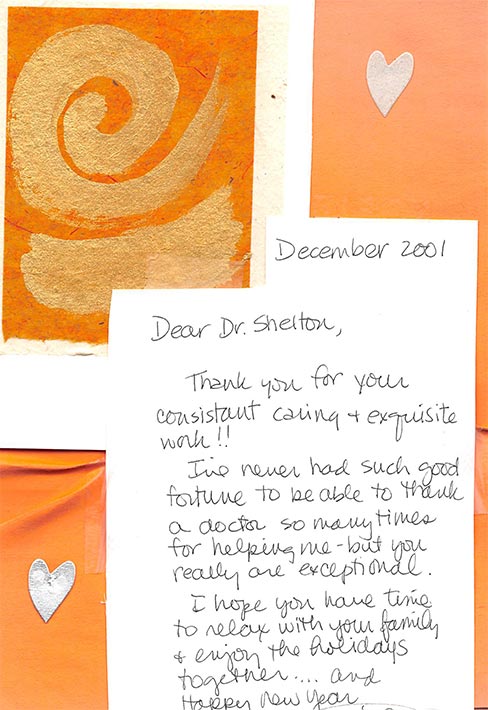 December 2001
Dear Dr. Shelton,
Thank you for your
consistant caring + exquisite
work!!
I've never had such good
fortune to be able to thank
a doctor so many times
for helping me - but you
really are exceptional.
I hope you have time
to relax with your family
+ enjoy the holidays
together.... and
Happy New Year